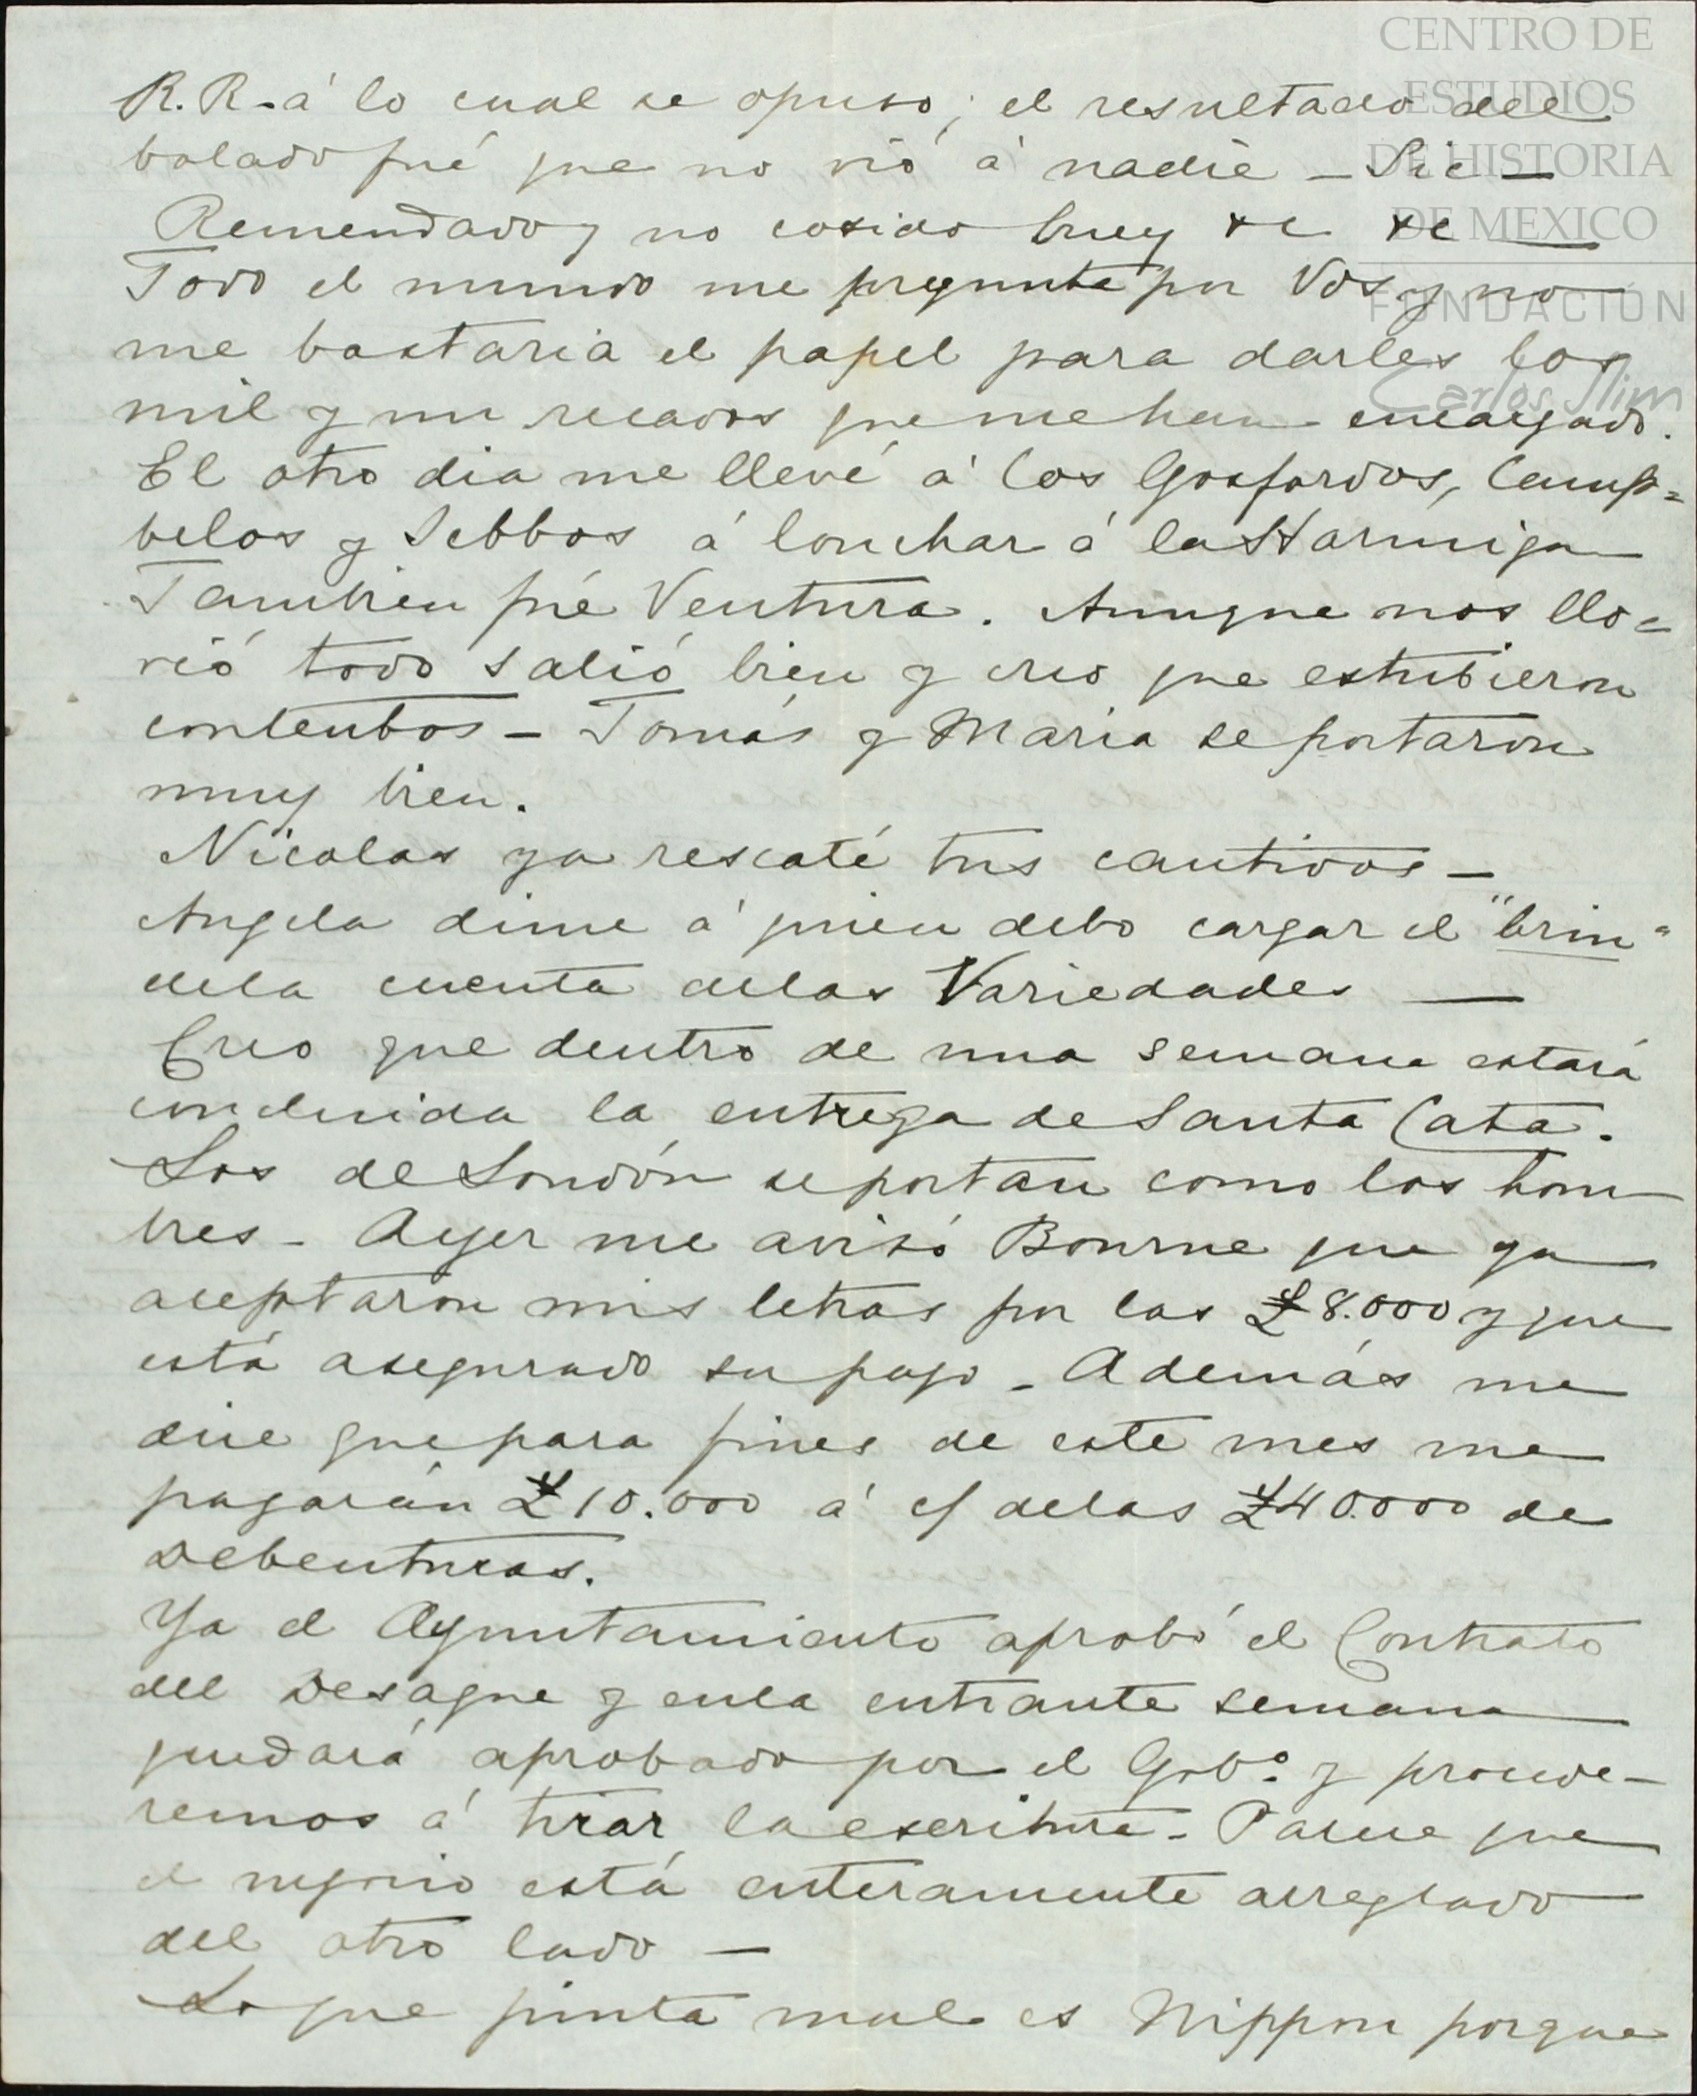 CENTRO DE
ESTUDIOS
DE HISTORIA
DE MEXICO
FUNDACIÓN
Carlos Slim
R. R. á lo cual se opuso; el resultado del
bolado fué que no vió á nadie — Sic —
Remendado y no cosido buey &c &c —
Todo el mundo me pregunta por Vds y no
me bastaria el papel para darles los
mil y un recados que me han encargado.
El otro dia me llevé á los Gosfordos, Camp=
belos y Sebbos á lonchar á la Hormiga
Tambien fué Ventura. Aunque nos llo=
vió todo salió bien y creo que estubieron
contentos — Tomás y Maria se portaron
muy bien.
Nicolas ya rescaté tus cautivos —
Angela dime á quien debo cargar el "brin"
de la cuenta de las Variedades —
Creo que dentro de una semana estará
concluida la entrega de Santa Cata.
Los de Londón se portan como los hom
bres — Ayer me avisó Bourne que ya
aceptaron mis letras por las £8.000 y que
está asegurado su pago — Además me
dice que para fines de este mes me
pagarán £10.000 á c/ de las £40.000 de
Debenturas.
Ya el Ayuntamiento aprobó el Contrato
del Desague y en la entrante semana
quedará aprobado por el Gobº. y procede—
remos á tirar la escritura — Parece que
el negocio está enteramente arreglado
del otro lado —
Lo que pinta mal es Nippon porque